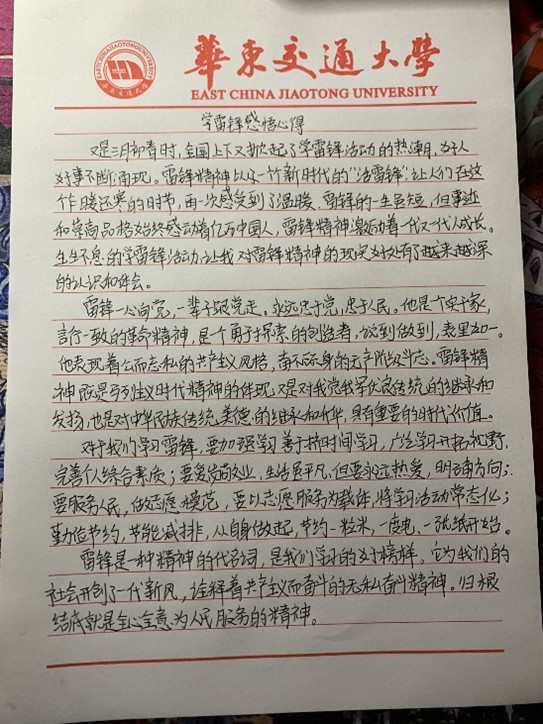 華東交通大學
EAST CHINA JIAOTONG UNIVERSITY
学雷锋感悟心得
又是三月初春时,全国上下又掀起了学雷锋活动的热潮,好人
好事不断涌现。雷锋精神以及一个新时代的“活雷锋”让人们在这
个乍暖还寒的时节,再一次感受到了温暖。雷锋的一生虽短,但事迹
和崇高品格始终感动着亿万中国人,雷锋精神激励着一代又一代人成长。
生生不息的学雷锋活动,让我对雷锋精神的现实好处有了越来越深
的认识和体会。
雷锋一心向党,一辈子跟党走。永远忠于党,忠于人民。他是个实干家,
言行一致的革命精神,是个勇于探索的创造者,说到做到,表里如一。
他表现着公而忘私的共产主义风格,奋不顾身的无产阶级斗志。雷锋精
神既是马列主义时代精神的体现,又是对我党我军优良传统的继承和
发扬,也是对中华民族传统美德的继承和升华,具有重要的时代价值。
对于我们学习雷锋,要加强学习,善于挤时间学习,广泛学习开拓视野,
完善个人综合素质;要爱岗敬业,生活虽平凡,但要永远热爱,明确方向;
要服务人民,做志愿模范,要以志愿服务为载体,将学习活动常态化;
勤俭节约,节能减排,从自身做起,节约一粒米,一度电,一张纸开始。
雷锋是一种精神的代名词,是我们学习的好榜样。它为我们的
社会开创了一代新风,诠释着共产主义而奋斗的无私奋斗精神。归根
结底就是全心全意为人民服务的精神。